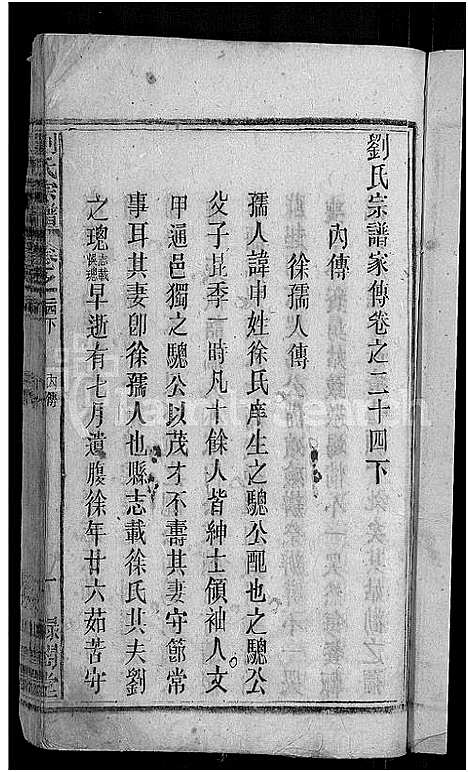 劉氏宗譜家傳卷之三十四下
內傳
徐孺人傳
孺人諱申姓徐氏庠生之驄公配也之驄公
父子昆季一時凡十餘人皆紳士領袖人文
甲通邑獨之驄公以茂才不壽其妻守節常
事耳其妻卽徐孺人也縣志載徐氏其夫劉
之璁志載早逝有七月遺腹徐年廿六茹苦守
劉氏宗譜
卷之
內傳